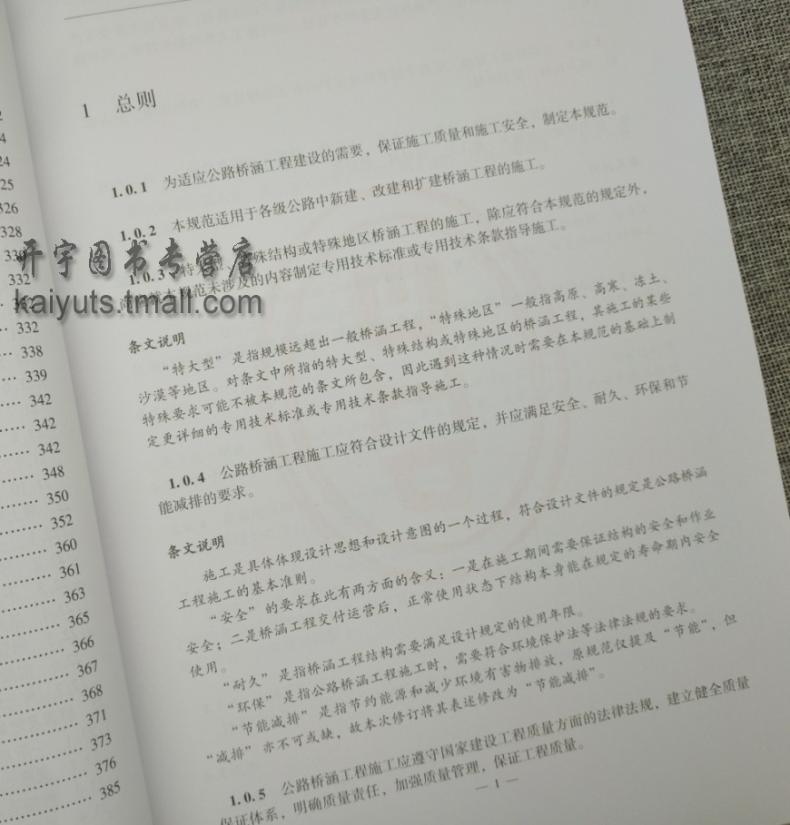 1 总则
1.0.1 为适应公路桥涵工程建设的需要，保证施工质量和施工安全，制定本规范。
1.0.2 本规范适用于各级公路中新建、改建和扩建桥涵工程的施工。
1.0.3 特 殊结构或特殊地区桥涵工程的施工，除应符合本规范的规定外，
本规范未涉及的内容制定专用技术标准或专用技术条款指导施工。
条文说明
“特大型”是指规模远超出一般桥涵工程，“特殊地区”一般指高原、高寒、冻土、
沙漠等地区。对条文中所指的特大型、特殊结构或特殊地区的桥涵工程，其施工的某些
特殊要求可能不被本规范的条文所包含，因此遇到这种情况时需要在本规范的基础上制
定更详细的专用技术标准或专用技术条款指导施工。
1.0.4 公路桥涵工程施工应符合设计文件的规定，并应满足安全、耐久、环保和节
能减排的要求。
条文说明
施工是具体体现设计思想和设计意图的一个过程，符合设计文件的规定是公路桥涵
工程施工的基本准则。
“安全”的要求在此有两方面的含义：一是在施工期间需要保证结构的安全和作业
安全；二是桥涵工程交付运营后，正常使用状态下结构本身能在规定的寿命期内安全
使用。
“耐久”是指桥涵工程结构需要满足设计规定的使用年限。
“环保”是指公路桥涵工程施工时，需要符合环境保护法等法律法规的要求。
“节能减排”是指节约能源和减少环境有害物排放，原规范仅提及“节能”，但
“减排”亦不可或缺，故本次修订将其表述修改为“节能减排”。
1.0.5 公路桥涵工程施工应遵守国家建设工程质量方面的法律法规，建立健全质量
保证体系，明确质量责任，加强质量管理，保证工程质量。
— 1 —
24
25
326
328
330
332
332
338
339
342
342
342
348
350
352
360
361
363
365
366
367
368
371
373
376
385
开宇图书专营店
kaiyuts.tmall.com